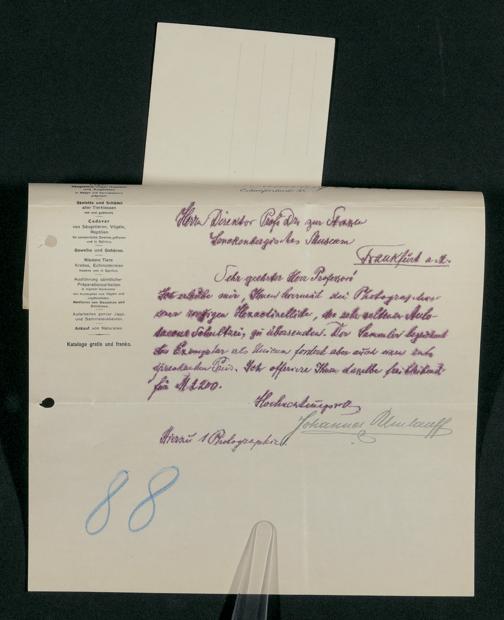 und Reptilien
Skelette und Schädel
aller Tierklassen
Cadaver
von Säugetieren, Vögeln,
Reptilien
Geweihe und Gehörne.
Niedere Tiere
Krebse, Echinodermen
Ausführung sämtlicher
Präparationsarbeiten
Ankauf von Naturalien
Kataloge gratis und franko.
Herrn Direktor Prof. Dr. zur Strassen
Senckenbergisches Museum
Frankfurt a. M.
Sehr geehrter Herr Professor!
Ich erlaube mir, Ihnen hiermit die Photographie
einer Hexactinellide, der sehr seltenen
Schultzei, zu übersenden. Der Sammler bezeichnet
das Exemplar als Unicum fordert aber auch einen ent-
sprechenden Preis. Ich offeriere Ihnen dasselbe freibleibend
für M 1200.
Hochachtungsvoll
Johannes Umlauff
Hierzu 1 Photographie
88